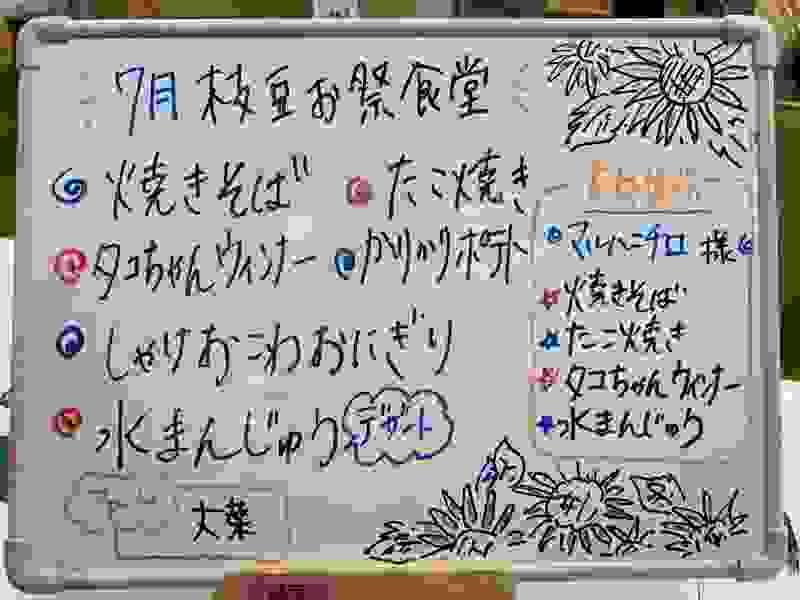 7月 枝豆お祭食堂
焼きそば たこ焼き
タコちゃんウィンナー カリカリポテト
しゃけおこわおにぎり
水まんじゅう デザート
大葉
マルハニチロ 様
焼きそば
たこ焼き
タコちゃんウィンナー
水まんじゅう